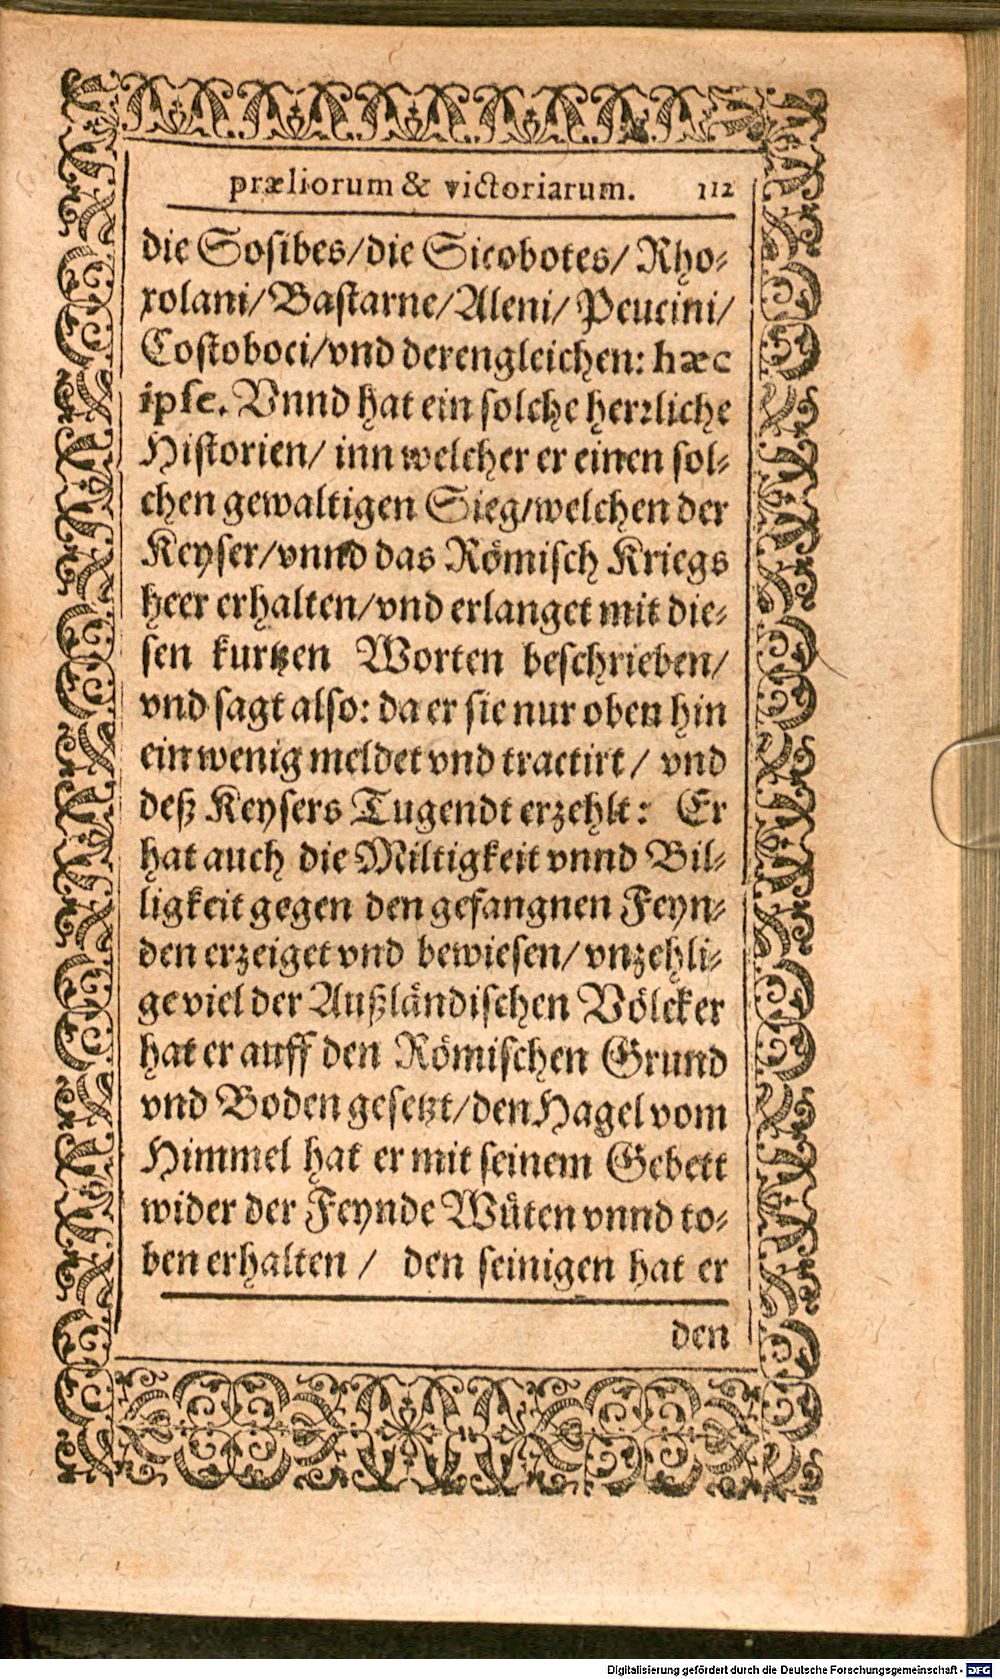 præliorum & victoriarum. 112
die Sosibes/die Sicobotes/ Rho-
xolani/Bastarne/Aleni/ Peucini/
Costoboci/vnd derengleichen: hæc
ipse. Vnnd hat ein solche herrliche
Historien/ inn welcher er einen sol-
chen gewaltigen Sieg/welchen der
Keyser/vnnd das Römisch Kriegs
heer erhalten/vnd erlanget mit die-
sen kurtzen Worten beschrieben/
vnd sagt also: da er sie nur oben hin
ein wenig meldet vnd tractirt/ vnd
deß Keysers Tugendt erzehlt: Er
hat auch die Miltigkeit vnnd Bil-
ligkeit gegen den gefangnen Feyn-
den erzeiget vnd bewiesen/ vnzehli-
ge viel der Außländischen Völcker
hat er auff den Römischen Grund
vnd Boden gesetzt/den Hagel vom
Himmel hat er mit seinem Gebett
wider der Feynde Wüten vnnd to-
ben erhalten/ den seinigen hat er
den
Digitalisierung gefördert durch die Deutsche Forschungsgemeinschaft - DFG